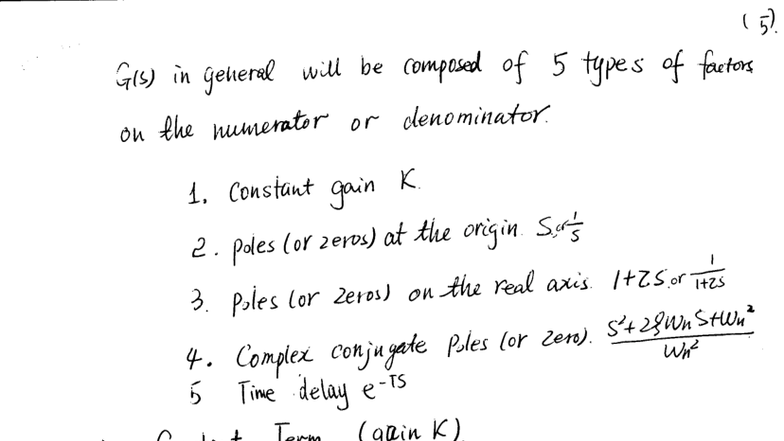 (5)
G(s) in general will be composed of 5 types of factors
on the numerator or denominator.
1. Constant gain K.
2. poles (or zeros) at the origin. S or 1/S
3. Poles (or zeros) on the real axis. 1+ZS or 1/(1+ZS)
4. Complex conjugate Poles (or zero). (S²+2ξWnS+Wn²)/Wn²
5 Time delay e^-TS
Term (gain K)